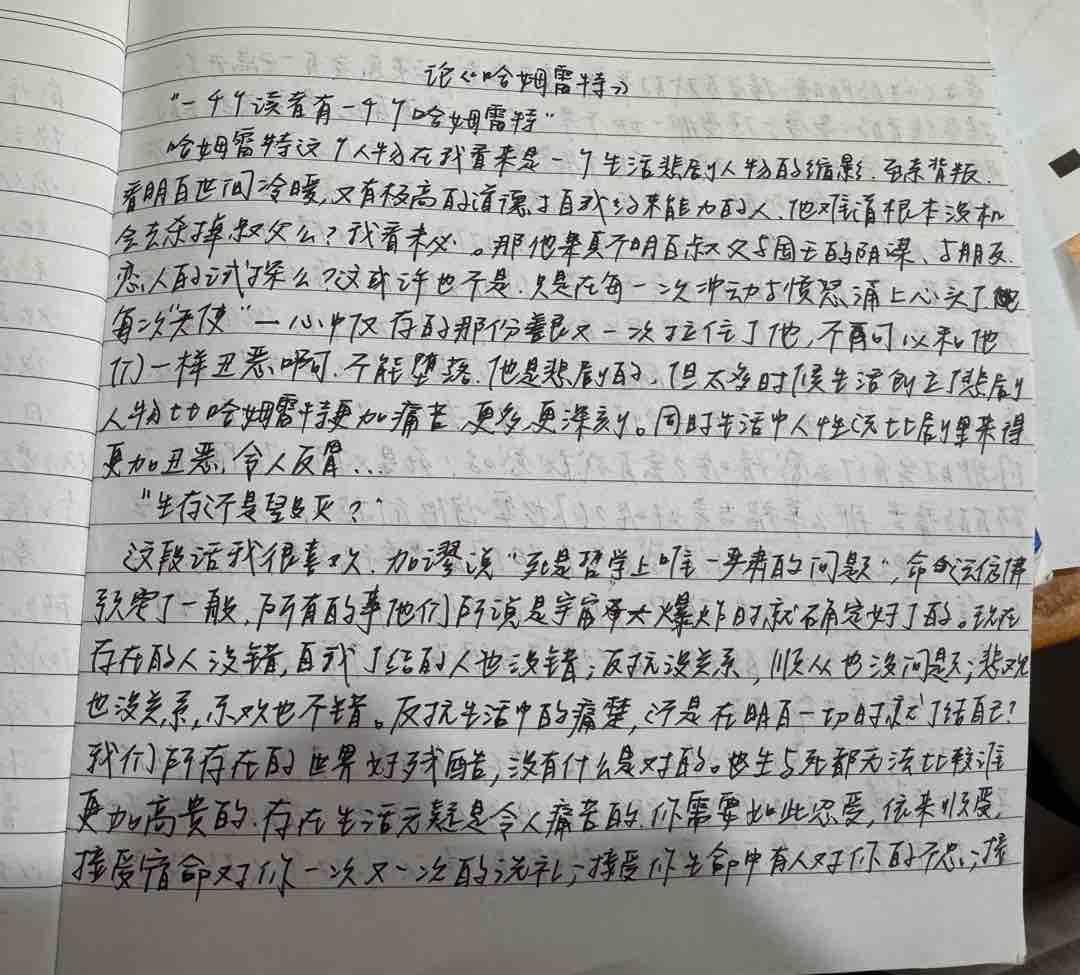 论《哈姆雷特》
"一千个读者有一千个哈姆雷特"
哈姆雷特这个人物在我看来是一个生活悲剧人物的缩影.至亲背叛.
看明白世间冷暖,又有极高的道德与自我约束能力的人.他难道根本没机
会去杀掉叔父么?我看未必。那他果真不明白叔父与国王的阴谋、与朋友.
恋人的试探么?这或许也不是.只是在每一次冲动与愤怒涌上心头了
每次"天使"一心中仅存的那份善良又一次拉住了他,不再可以和他
们一样丑恶啊.不能堕落.他是悲剧的.但太多时候生活创立了悲剧
人物比哈姆雷特更加痛苦.更多.更深刻。同时生活中人性远比剧里来得
更加丑恶,令人反胃...
"生存还是毁灭?"
这段话我很喜欢.加谬说"死是哲学上唯一严肃的问题",命运仿佛
预定了一般,所有的事他们所说是宇宙大爆炸时就确定好了的。现在
存在的人没错,自我了结的人也没错;反抗没关系,顺从也没问题;悲观
也没关系,乐观也不错。反抗生活中的痛楚,还是在明白一切时就了结自己?
我们所存在的世界好残酷,没有什么是对的。生与死都无法比较谁
更加高贵的.存在生活无疑是令人痛苦的.你需要如此忍受,逆来顺受,
接受宿命对你一次又一次的洗礼;接受你生命中有人对你的不忠;接